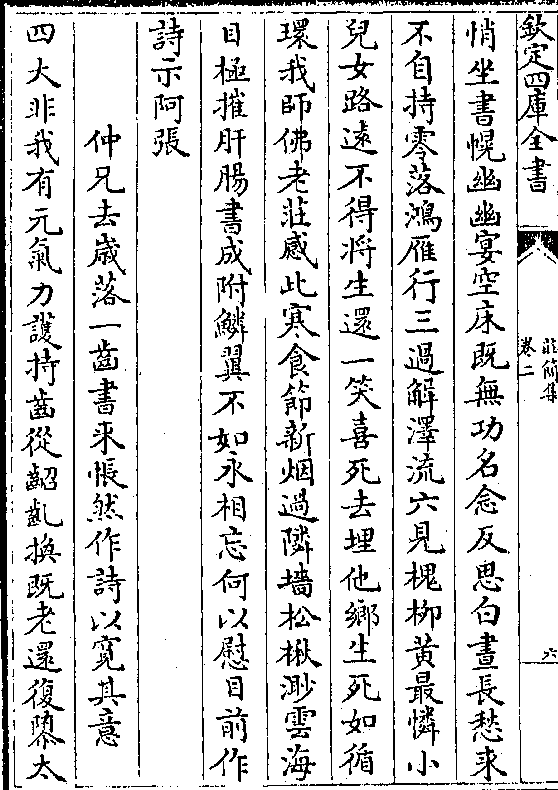 欽定四庫全書
莊簡集
卷二
六
悄坐書幌幽幽宴空床既無功名念反思白晝長愁来
不自持零落鴻雁行三過解澤流六見槐柳黄最憐小
兒女路逺不得将生還一笑喜死去埋他鄉生死如循
環我師佛老莊感此寒食節新烟過隣墻松楸渺雲海
目極摧肝腸書成附鱗翼不如永相忘何以慰目前作
詩示阿張
仲兄去歳落一齒書来悵然作詩以寛其意
四大非我有元氣力護持齒從齠齓換既老還復隳太